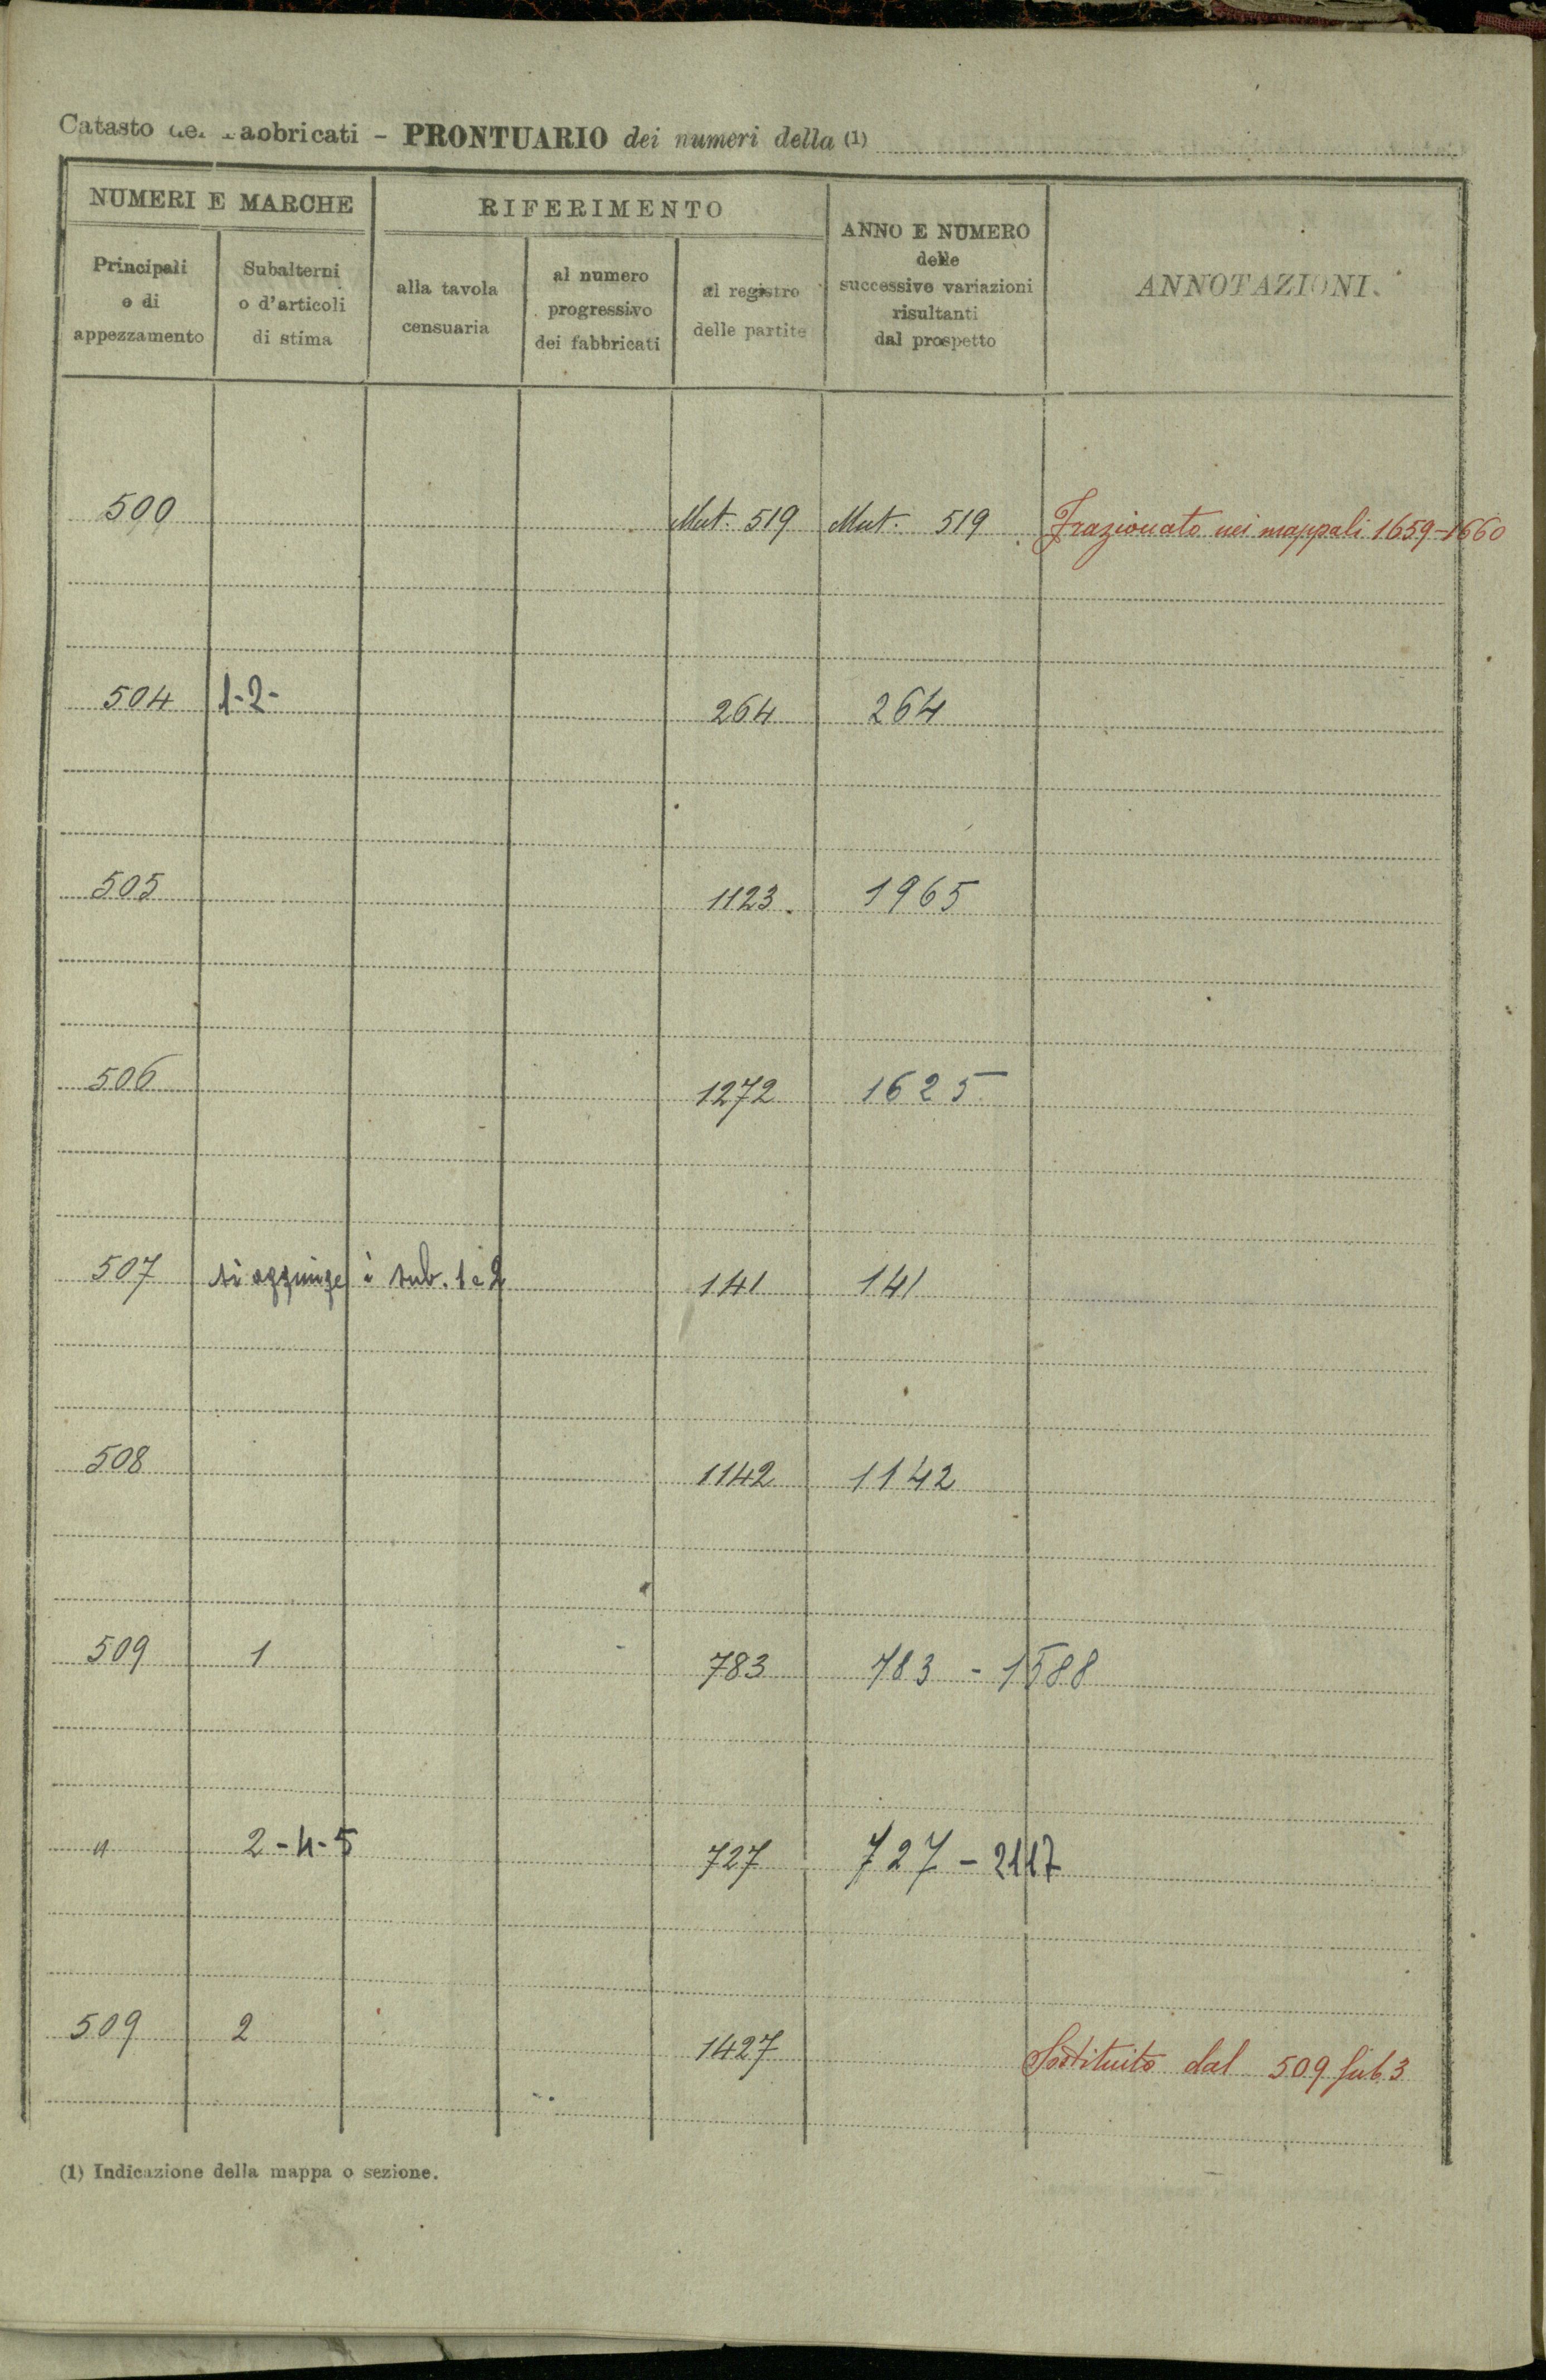 Catasto dei Fabbricati - PRONTUARIO dei numeri della (1)
NUMERI E MARCHE
RIFERIMENTO
ANNO E NUMERO
delle
successive variazioni
risultanti
dal prospetto
ANNOTAZIONI.
Principali
o di
appezzamento
Subalterni
o d'articoli
di stima
alla tavola
censuaria
al numero
progressivo
dei fabbricati
al registro
delle partite
500 Mut. 519 Mut. 519 Frazionato nei mappali 1659-1660
504 1-2- 264 264
505 1123. 1965
506 1272 1625
507 si aggiunge i sub. 1 e 2 141 141
508 1142 1142
509 1 783 783 - 1588
" 2-4-5 727 727 - 2117
509 2 1427 Sostituito dal 509 sub 3
(1) Indicazione della mappa o sezione.